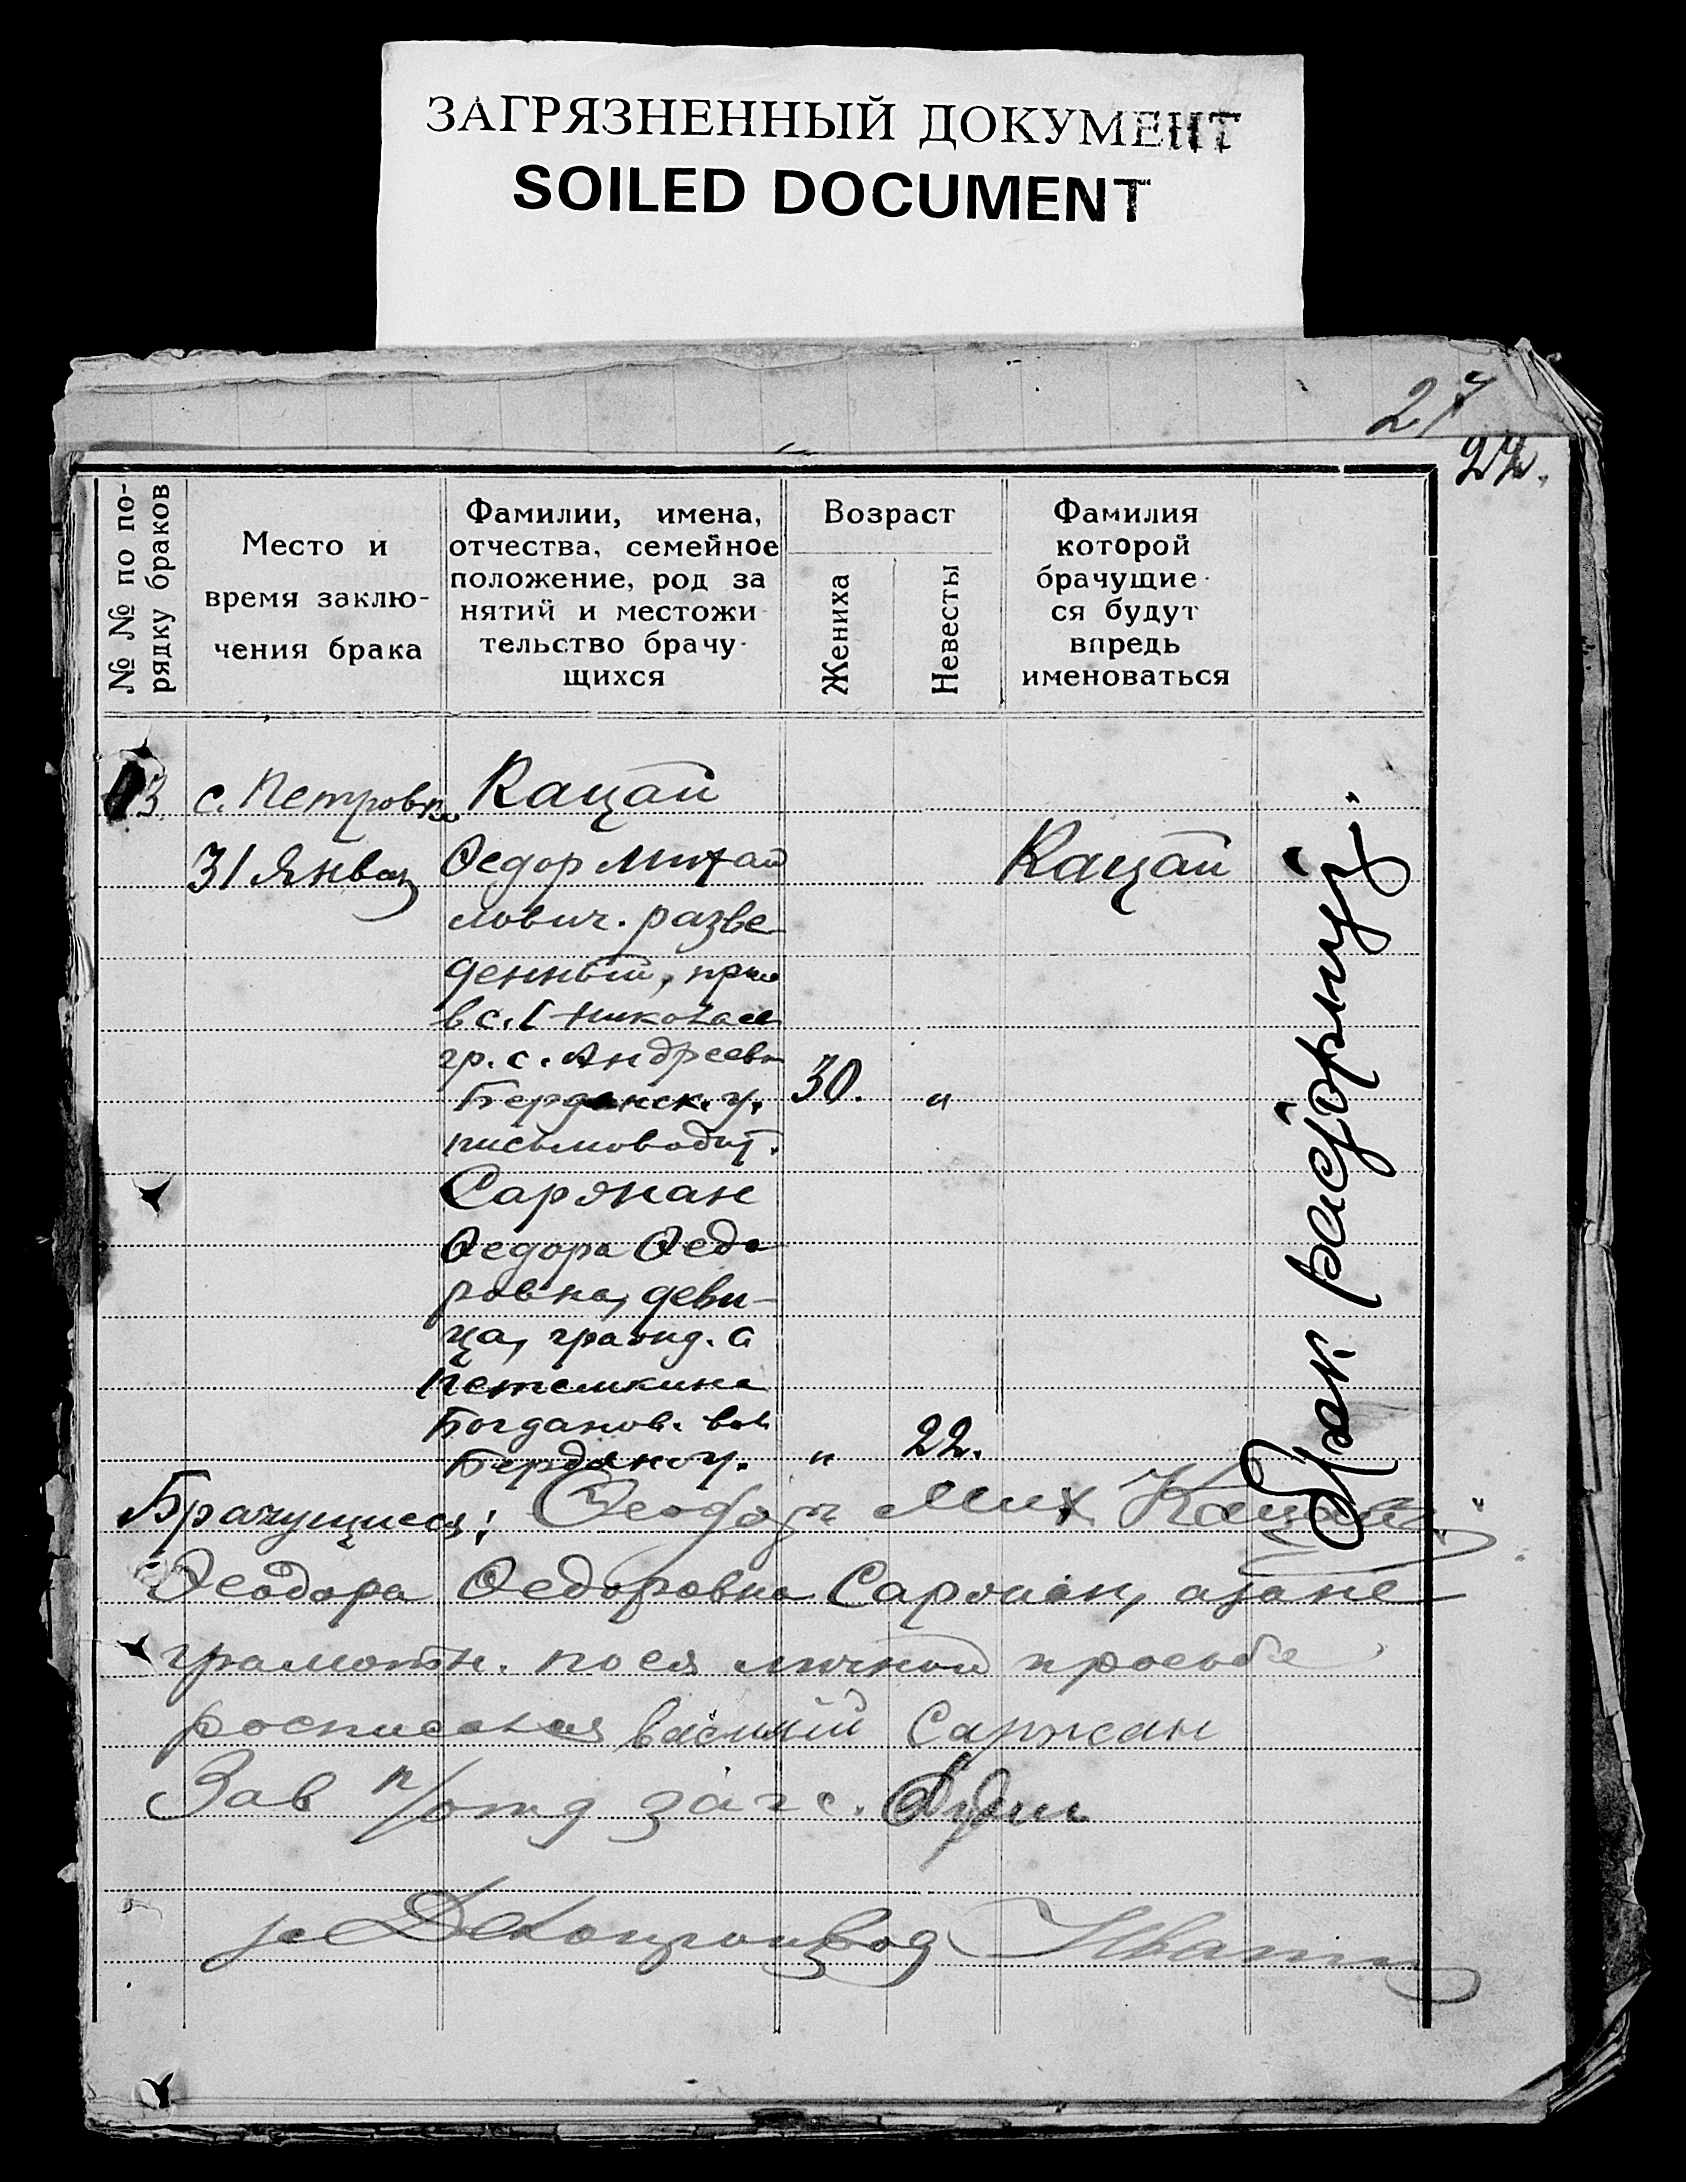 ЗАГРЯЗНЕННЫЙ ДОКУМЕНТ
SOILED DOCUMENT
27
22.
№ № по по-
рядку браков
Место и
время заклю-
чения брака
Фамилии, имена,
отчества, семейное
положение, род за
нятий и местожи
тельство брачу-
щихся
Возраст
Жениха
Невесты
Фамилия
которой
брачущие-
ся будут
впредь
именоваться
13 с. Петровка Кацай
31 Января Федор Михай Кацай
лович. разве
денный, прож
в с. Николаев
гр. с. Андреевки
Бердянск. у. 30. "
письмоводит.
Саржан
Федора Федо
ровна, деви-
ца, гражд. с
Петемкина
Богданов. вол
Бердянс у. " 22.
Брачущиеся: Феодор Мих Кацай
Феодора Федоровна Саржан, а за не
грамотн. по ея личной просьбе
росписался Василий Саржан
Зав п/отд загс.
Делопроизвод
Брак расторгнут